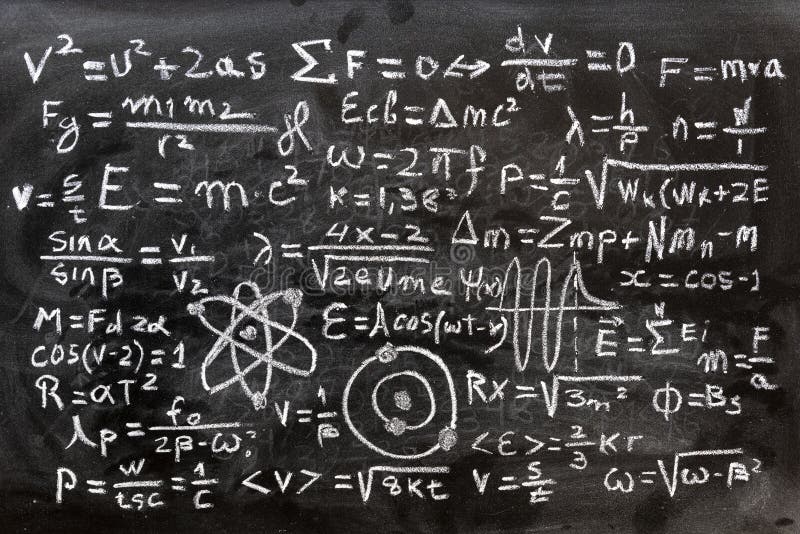 v² = u² + 2as   ΣF = 0 ↔ dv/dt = 0   F = mva
Fg = m₁m₂/r²   Ecb = Δmc²   λ = h/p   n = √/1
ω = 2πf
v = s/t   E = m·c²   K = 1,38²   P = 1/c √Wk(Wk+2E
sinα/sinβ = v₁/v₂   λ = 4x-2/√2eUme   Δm = Zmp + Nmn - M
ψ(x)   x = cos-1
M = Fd2α   E = A cos(ωt-x)   E⃗ = Σ Ei
cos(v-2) = 1   m = F/a
R = aT²   Rx = √3m²   Φ = Bs
λp = fo/2β-ω²   v = 1/β   <ε> = 2/3 kr
p = w/tsc = 1/c   <v> = √8kt   v = s/t   ω = √ω-β²